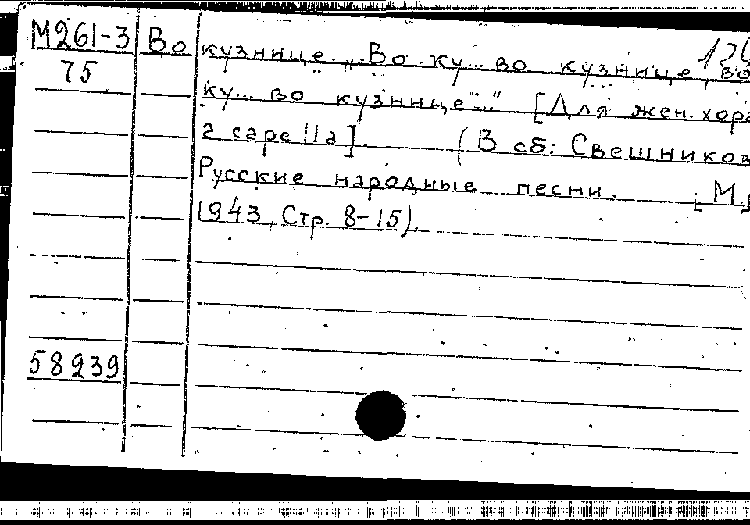 М261-3 Во кузнице „Во ку... во кузнице, во
75 ку... во кузнице..." [Для жен. хора
a capella] (В сб: Свешников
Русские народные песни. [М.,
1943, Стр. 8-15).
58239